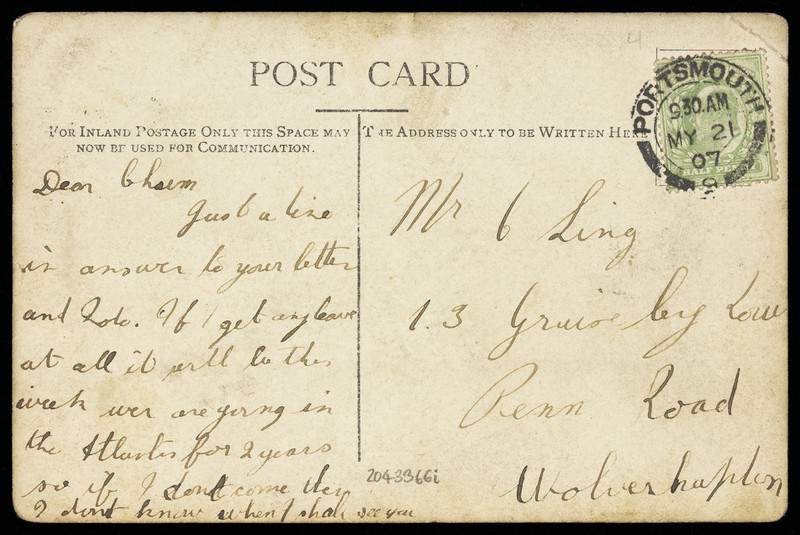 POST CARD
FOR INLAND POSTAGE ONLY THIS SPACE MAY
NOW BE USED FOR COMMUNICATION.
THE ADDRESS ONLY TO BE WRITTEN HERE
PORTSMOUTH
9.30.AM
MY 21
07
Dear Chum
Just a line
in answer to your letter
and Foto. If I get any leave
at all it will be this
week wer are going in
the Atlantic for 2 years
so if I dont come then
I dont know when I shall see you
Mr C Ling
1.3 Row
Penn Road
Wolverhapton
2043366i